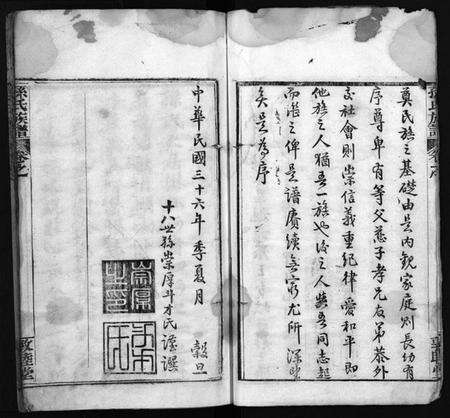 奠民族之基礎由是内觀家庭則長幼有
序尊卑有等父慈子孝兄友弟恭外
交社會則崇信義重紀律愛和平即
他族之人猶吾一族也後之人與吾同志起
而進之俾是譜賡續無窮尤所深
矣是為序
中華民國三十六年季夏月 穀旦
十八世孫崇厚斗才氏謹譔
崇厚
之印
氏
孫氏族譜
卷之
敦睦堂